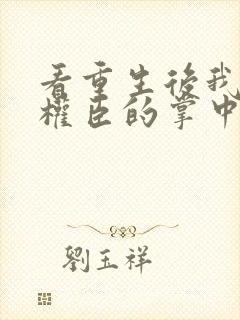 看重生後我
權臣的掌中
劉玉祥